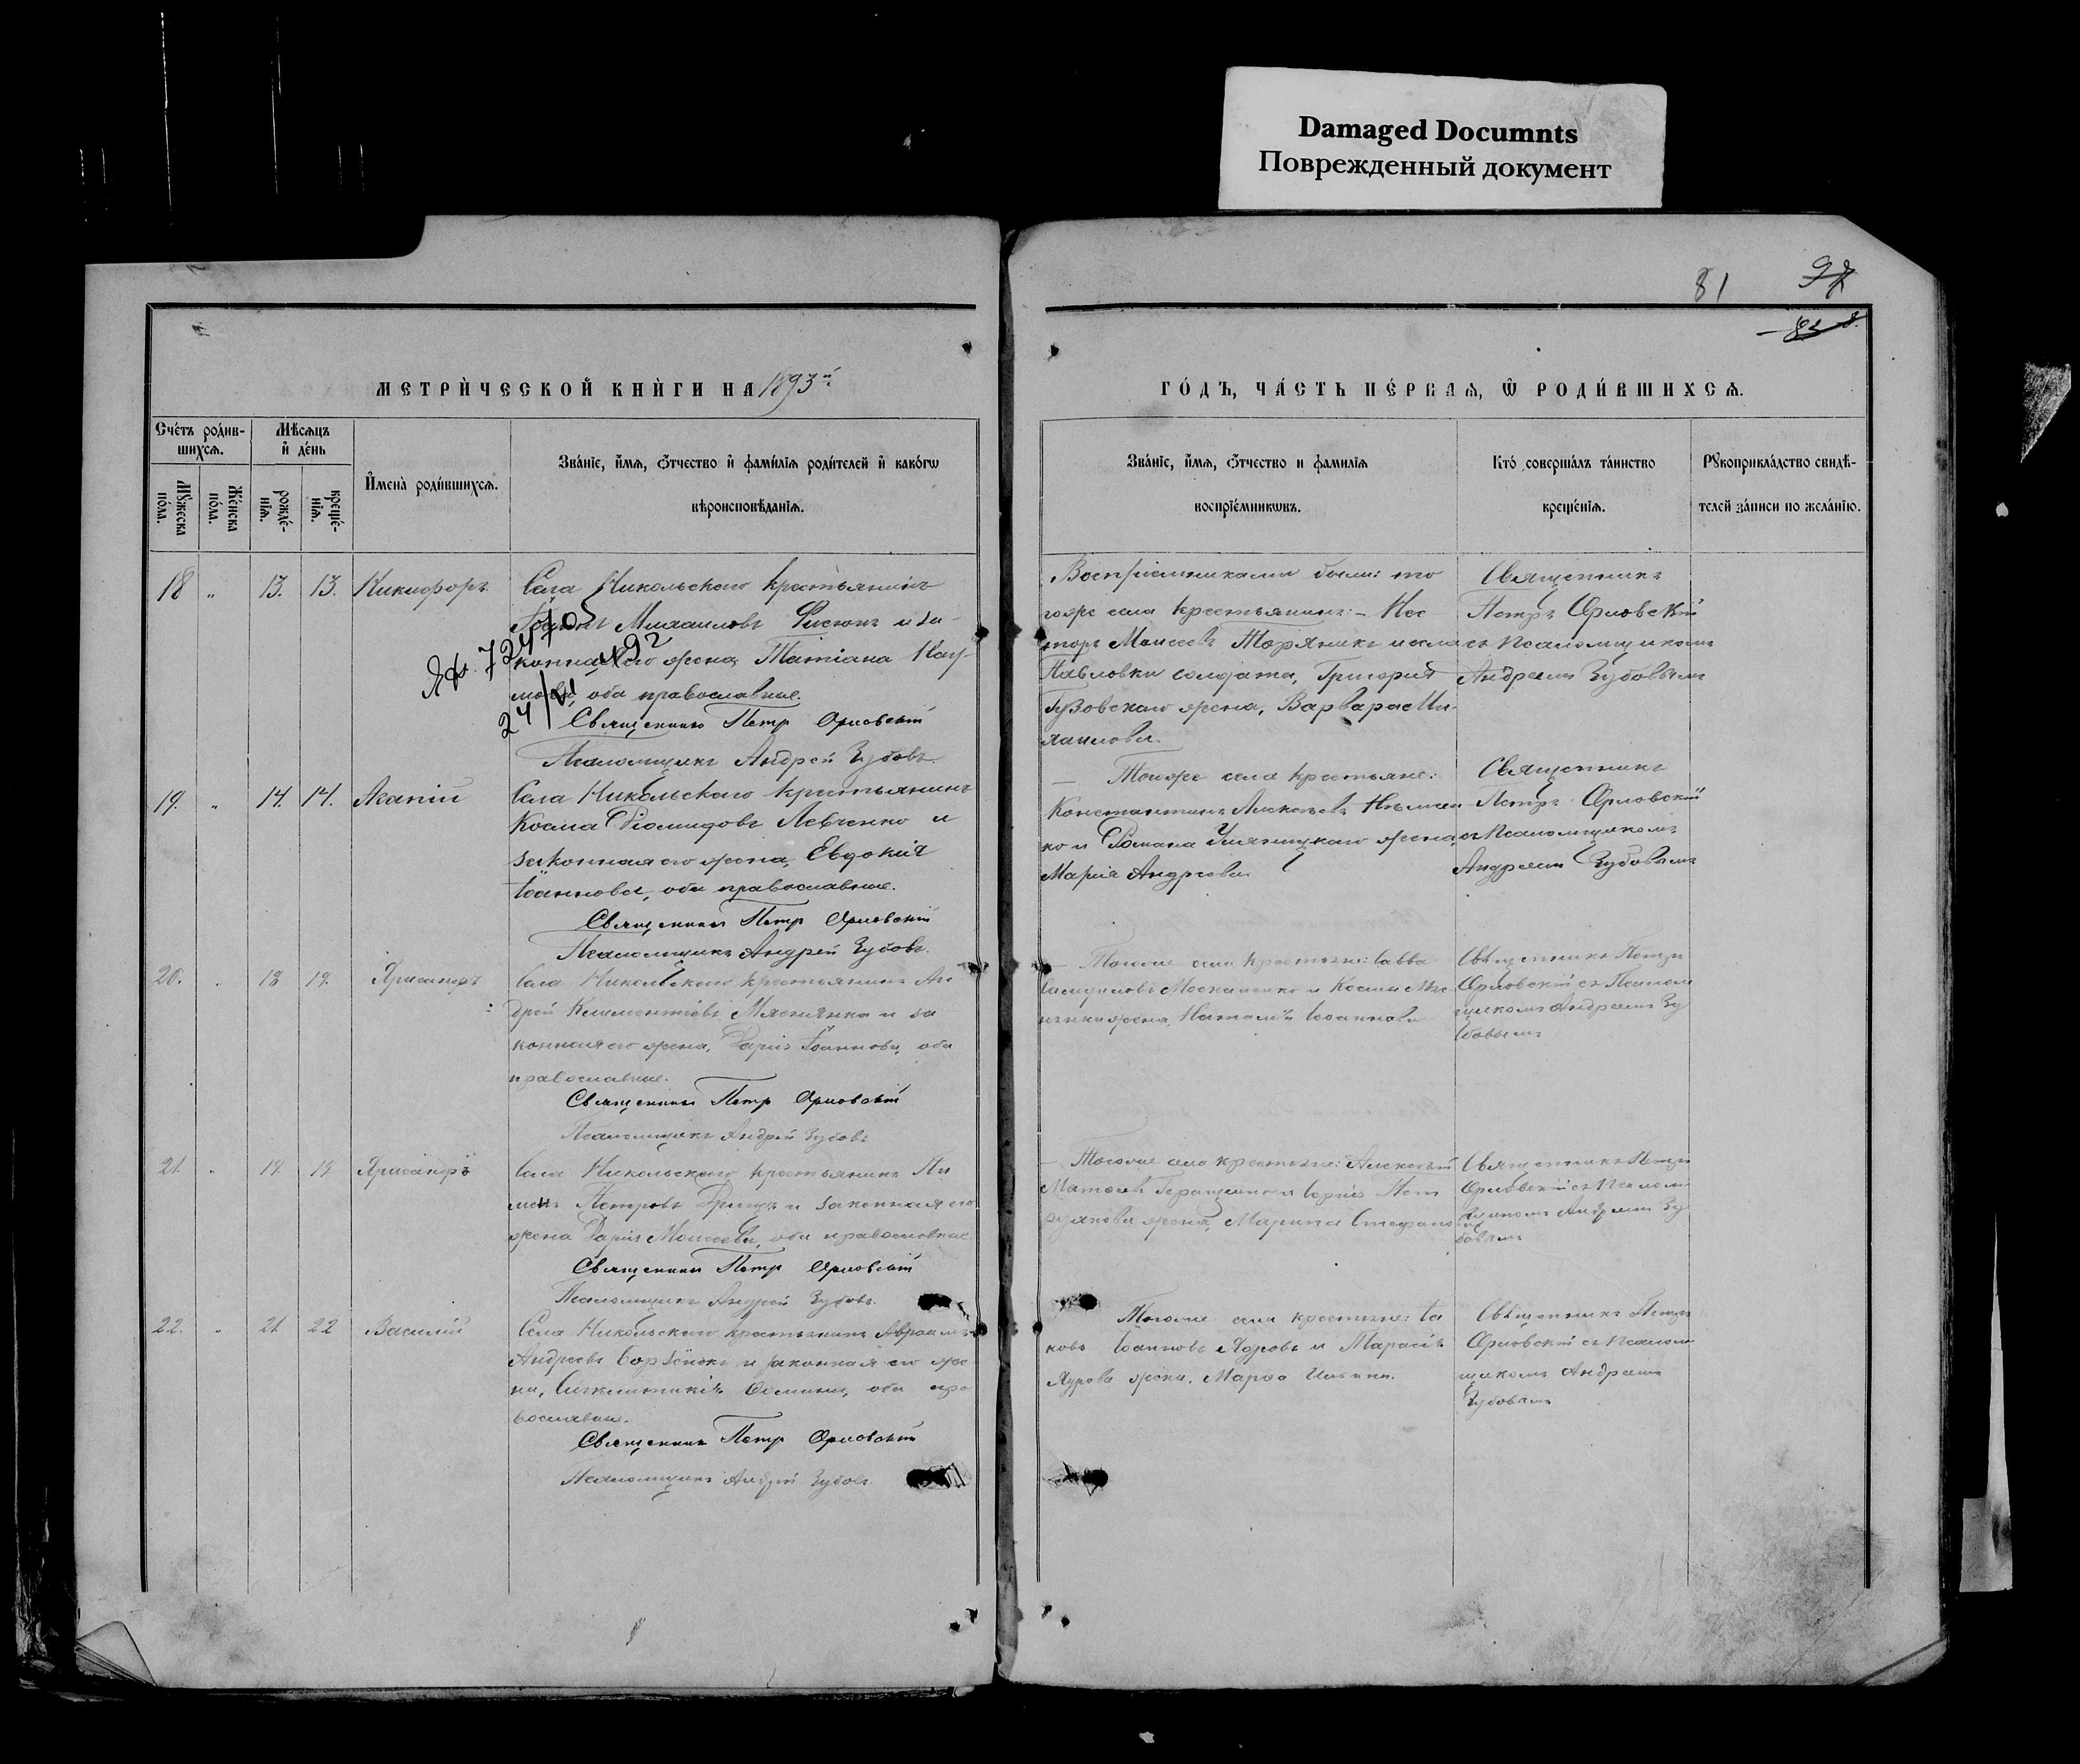 Damaged Documnts
Поврежденный документ
81
97
МЕТРИ́ЧЕСКОЙ КНИ́ГИ НА 1893й
ГО́ДЪ, ЧА́СТЬ ПЕ́РВАЯ, Ѿ РОДИ́ВШИХСЯ.
Сче́тъ роди́в-
шихся.
Мѣсяцъ
и҆ де́нь
Му́жеска
по́ла.
Же́нска
по́ла.
рожде́-
нїя.
креще́-
нїя.
И҆мена̀ роди́вшихся.
Зва́нїе, и҆мя, о҆тчество и҆ фами́лїя роди́телей и҆ како́гѡ
вѣроисповѣ́данїя.
Зва́нїе, и҆мя, о҆тчество и фами́лїя
воспрїе́мникѡвъ.
Кто́ соверша́лъ та́инство
креще́нїя.
Рꙋкоприкла́дство свидѣ́-
телей за́писи по жела́нїю.
18 " 13. 13. Никифоръ
Села Никольскаго крестьянинъ
Михаиловъ и за-
конная его жена Татіана Нау-
мова, оба православные.
Священникъ Петр Орловскій
Псаломщикъ Андрей Зубовъ.
Воспріемниками были: то
гоже села крестьянинъ – Нес
торъ Моисеевъ и села
Павловки солдата, Григорія
Гузовскаго жена, Варвара Ми-
хаилова.
Священникъ
Петръ Орловскій
съ Псаломщикомъ
Андреемъ Зубовымъ
19. " 14. 14.
Села Никольскаго крестьянинъ
Косма Діомидовъ Левченко и
законная его жена, Евдокія
Іоаннова, оба православные.
Священникъ Петр Орловскій
Псаломщикъ Андрей Зубовъ.
– Тогоже села крестьяне:
Константинъ Алексеевъ
ко и Романа жена,
Марія Андреева.
Священникъ
Петръ Орловскій
съ Псаломщикомъ
Андреемъ Зубовымъ
20. " 18 19. Хрисанфъ
Села Никольскаго крестьянинъ Ан
дрей Климентіевъ и за
конная его жена, Дарія Іоаннова, оба
православные.
Священникъ Петр Орловскій
Псаломщикъ Андрей Зубовъ
– Тогоже села крестьяне: Савва
Самуиловъ Москаленко и Космы
жена, Наталія Іоаннова
Священникъ Петръ
Орловскій съ Псалом
щикомъ Андреемъ Зу
бовымъ
21. " 19. 19. Хрисанфъ
Села Никольскаго крестьянинъ Пи
менъ Петровъ и законная его
жена Дарія Моисеева, оба православные
Священникъ Петр Орловскій
Псаломщикъ Андрей Зубовъ.
– Тогоже села крестьяне: Алексѣй
жена, Марина Стефанова
Священникъ Петръ
Орловскій съ Псалом
щикомъ Андреемъ Зу
бовымъ
22. " 21 22 Василій
Села Никольскаго крестьянинъ Авраамъ
Андреевъ и законная его же
на, Синклитикія оба пра
вославные.
Священникъ Петр Орловскій
Псаломщикъ Андрей Зубовъ.
Тогоже села крестьяне: Іа
ковъ Іоанновъ и
жена, Марфа Ильина.
Священникъ Петръ
Орловскій съ Псалом
щикомъ Андреемъ
Зубовымъ